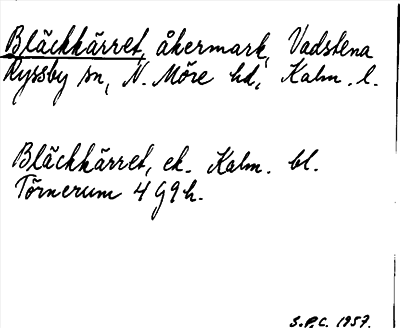 Bläckkärret, åkermark, Vadstena
Ryssby sn, N. Möre hd, Kalm. l.
Bläckkärret, ek. Kalm. bl.
Törnerum 4 G9h.
S.P.C. 1957.